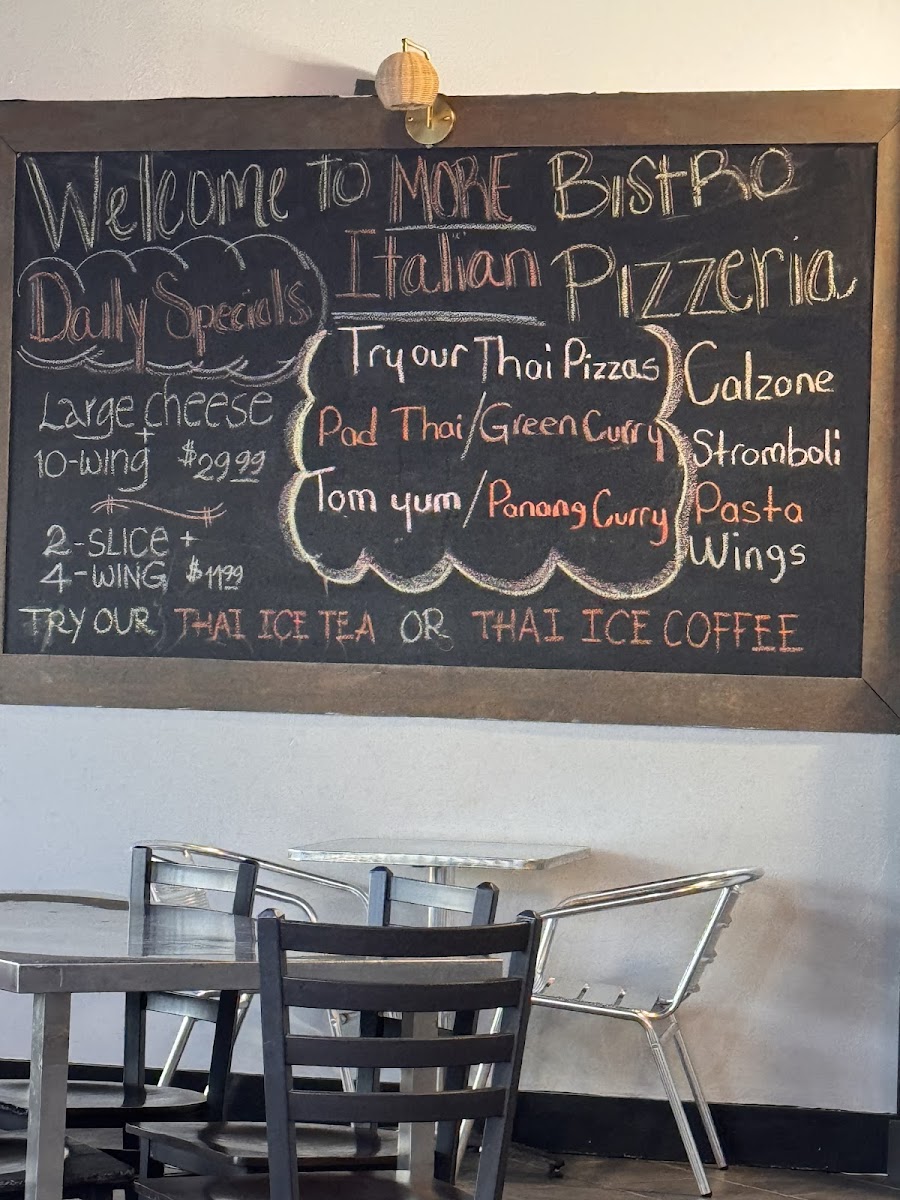 Welcome to MORE BistRo
Italian Pizzeria
Daily Specials
Large cheese
+
10-wing $29.99
2-SLICE +
4-WING $11.99
Try our Thai Pizzas
Pad Thai/Green Curry
Tom yum/Panang Curry
Calzone
Stromboli
Pasta
Wings
TRY OUR THAI ICE TEA OR THAI ICE COFFEE